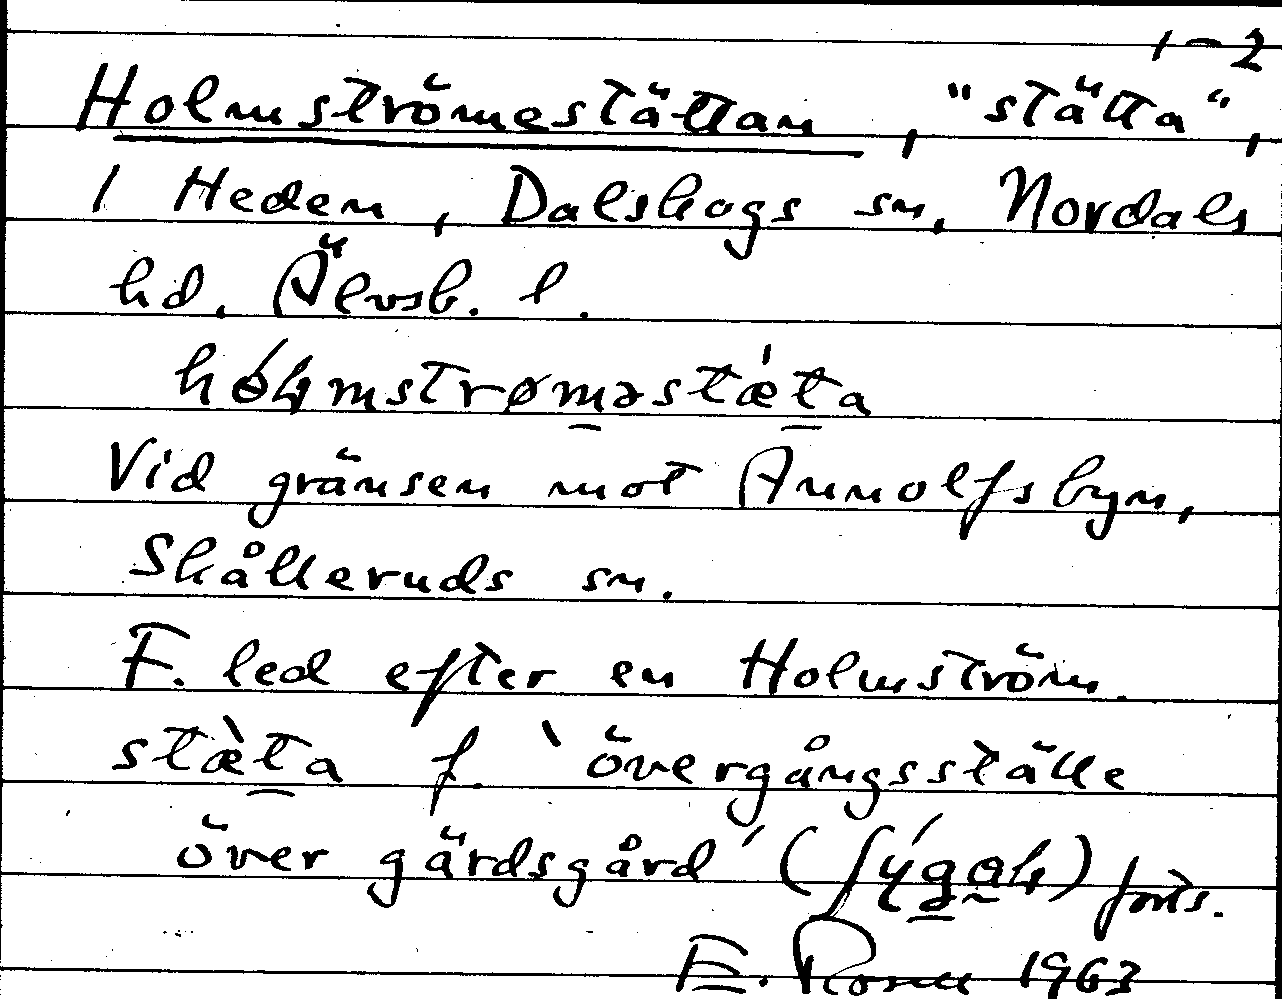 1-2
Holmströmestättan, "stätta",
1 Heden, Dalskogs sn, Nordals
hd. Älvsb. l.
Vid gränsen mot Annolfsbyn,
Skålleruds sn.
F. led efter en Holmström.
stæ̀ta f. 'övergångsställe
över gärdsgård' forts.
E. Rosell 1963